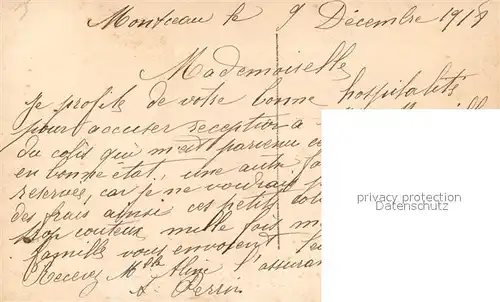 Montceau le 9 Décembre 1918
Mademoiselle
Je profite de votre bonne hospitalité
pour accuser reception à
du colis qui m'est parvenu
en bonne état, une autre
reserves, car je ne voudrai
des frais ainsi ces petits
trop couteux mille fois
famille vous envoyent
Recevez Mlle Aline l'assuran
A Perrin
privacy protection
Datenschutz